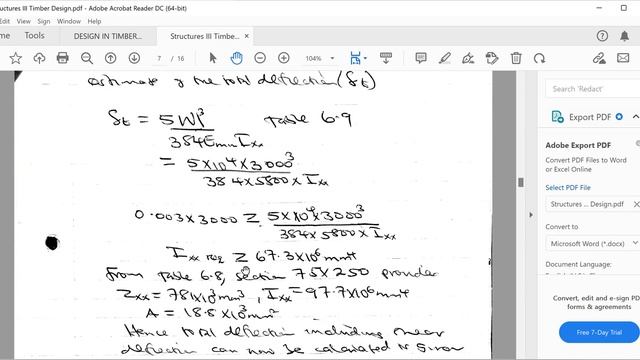 Structures III Timber Design.pdf - Adobe Acrobat Reader DC (64-bit)
Edit View Sign Window Help
Tools DESIGN IN TIMBER... Structures III Timbe... ×
7 / 16 104%
estimate of the total deflection (δt)
δt = 5Wl³ Table 6.9
384EminIxx
= 5×10⁴×3000³
384×5800×Ixx
0.003×3000 ≥ 5×10⁴×3000³
384×5800×Ixx
Ixx req ≥ 67.3×10⁶mm⁴
From Table 6.8, section 75×250 provides
Zxx = 781×10³mm³, Ixx = 97.7×10⁶mm⁴
A = 18.8×10³mm²
Hence total deflection including shear
deflection can now be calculated
Search 'Redact'
Export PDF
Adobe Export PDF
Convert PDF Files to Word
or Excel Online
Select PDF File
Structures ... Design.pdf ×
Convert to
Microsoft Word (*.docx)
Document Language:
Convert, edit and e-sign PD
forms & agreements
Free 7-Day Trial